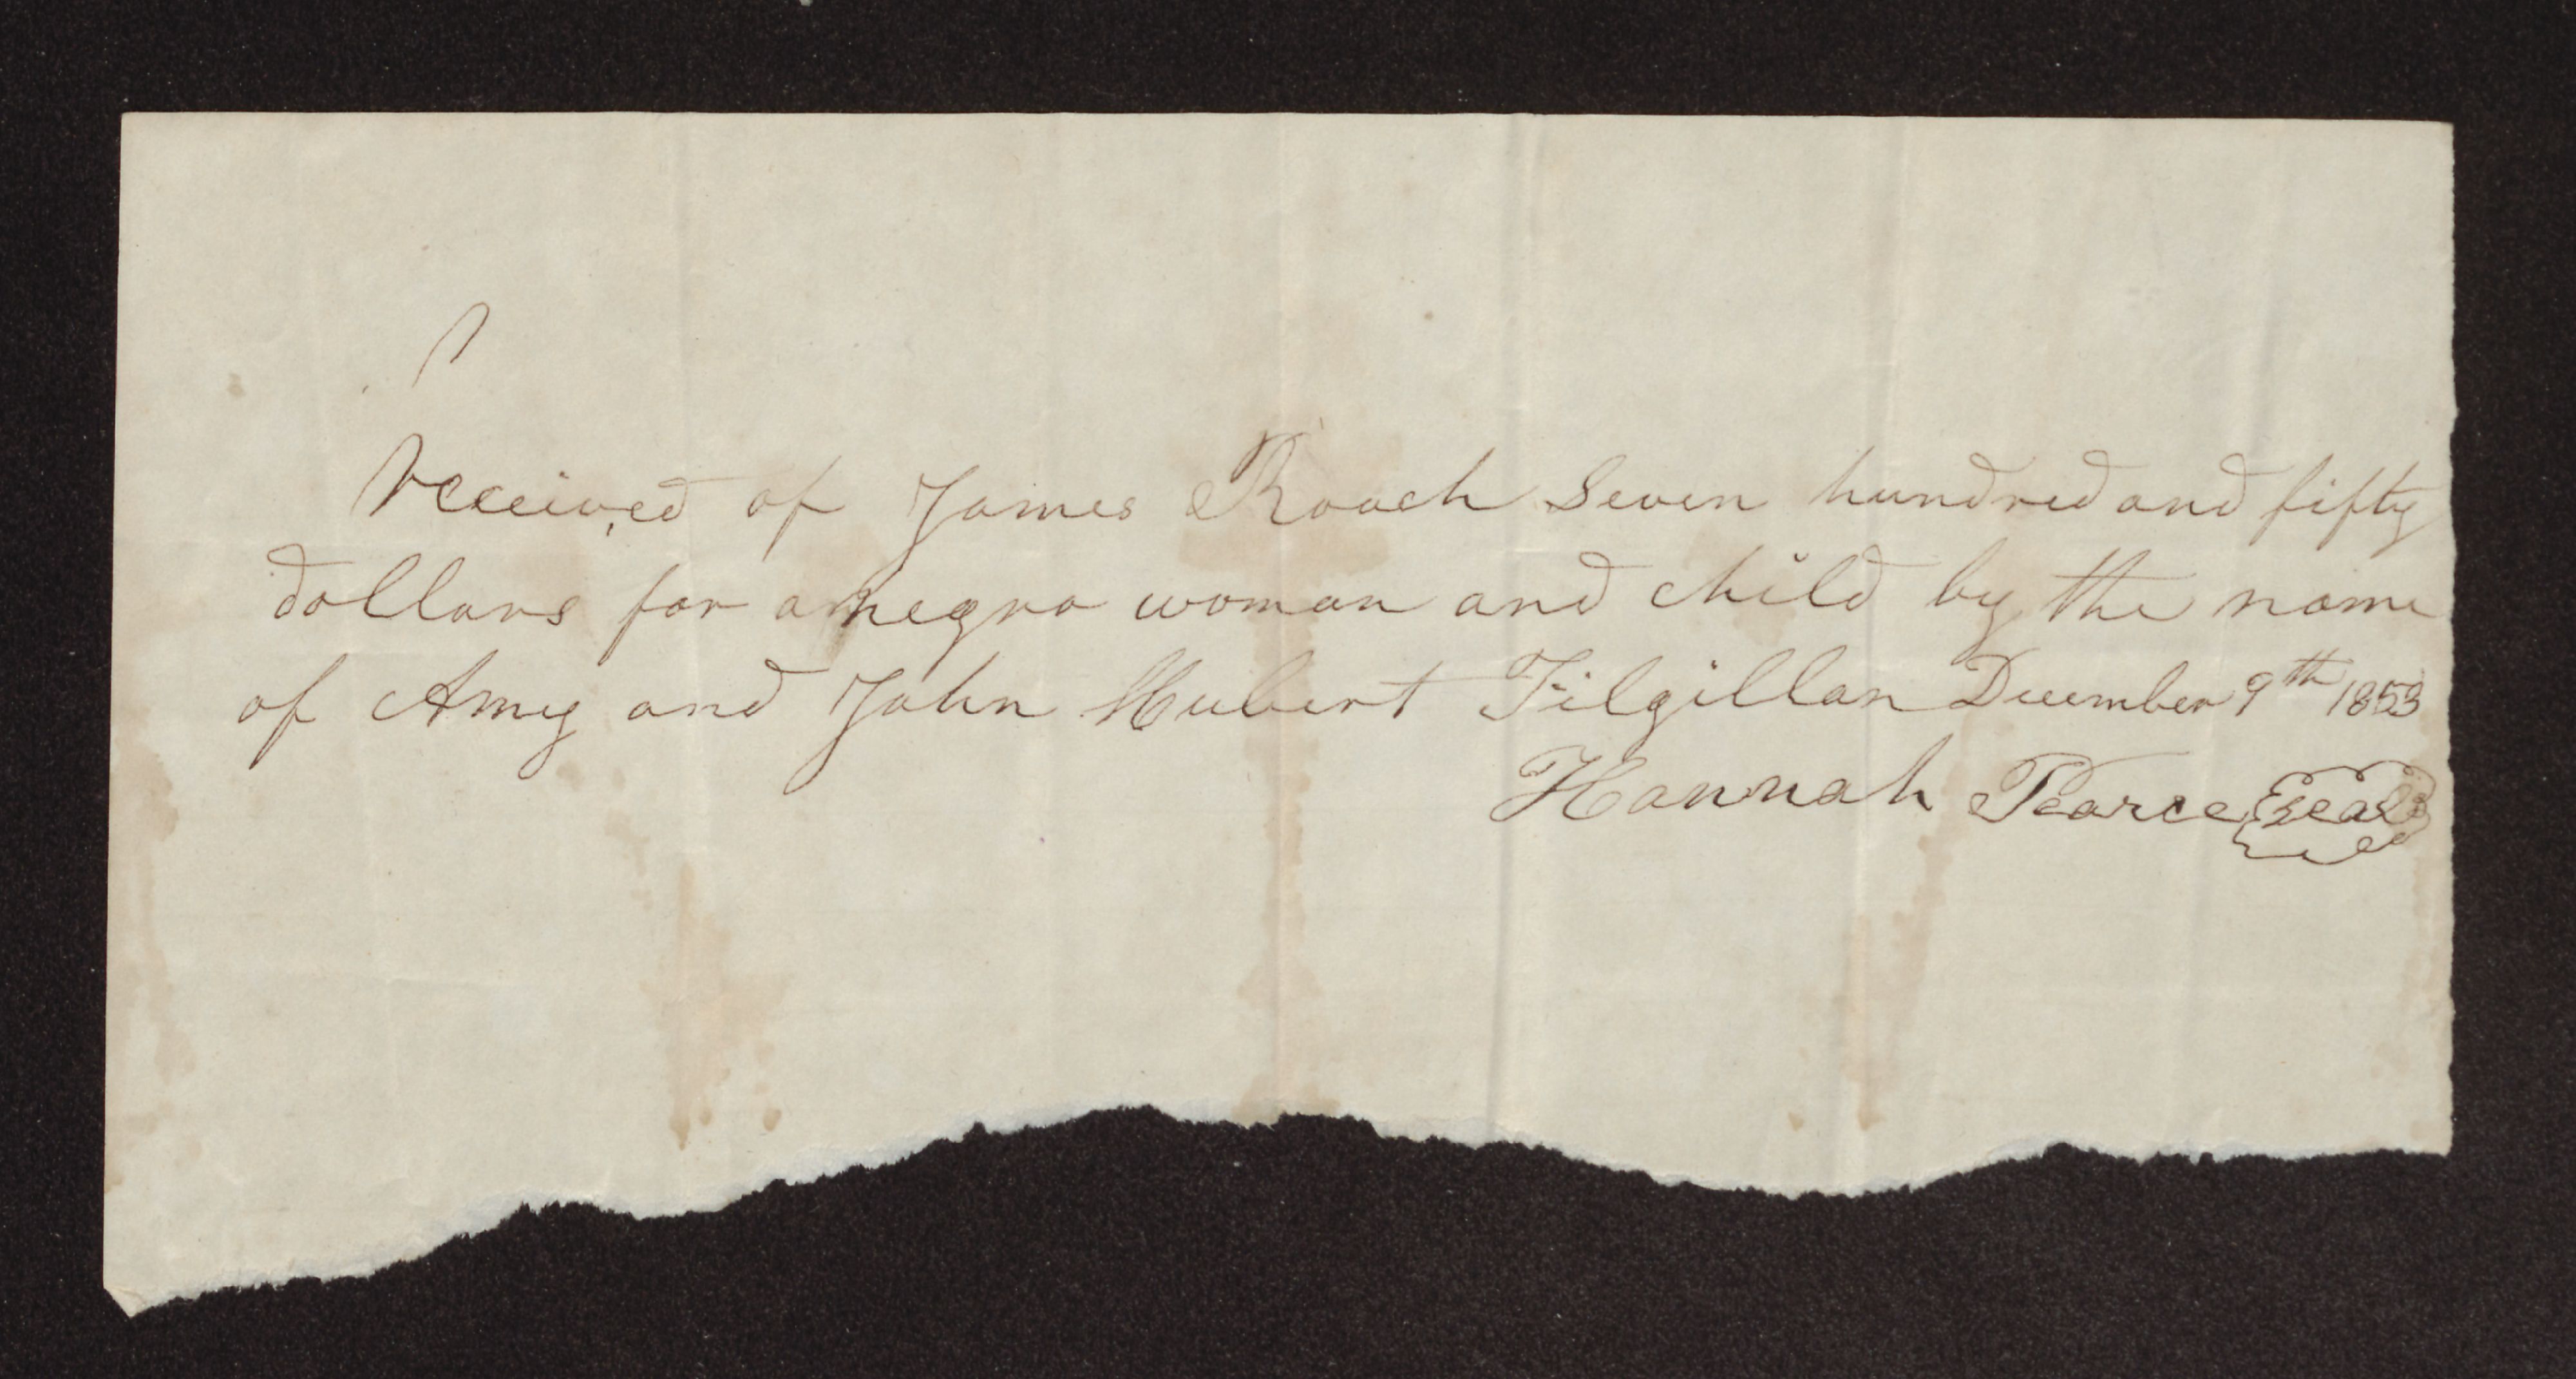 received of James Roach Seven hundred and fifty
dollars for a negro woman and child by the name
of Amy and John Hubert Filgillan December 9th 1853
Hannah Pearce seal